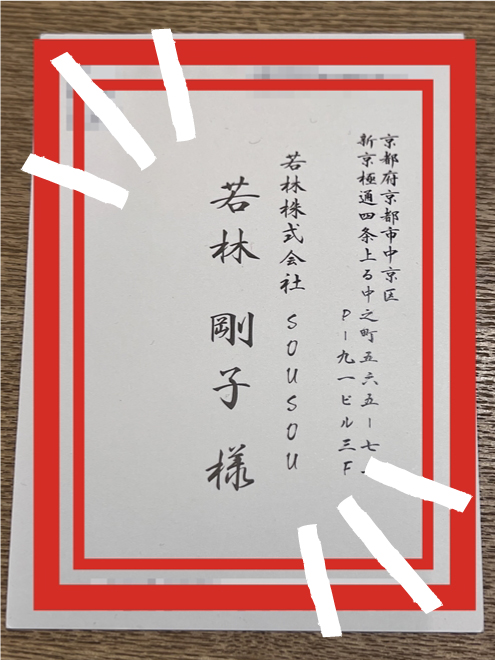 京都府京都市中京区
新京極通四条上る中之町五六五ー七
P－九一ビル三F
若林株式会社　SOUSOU
若林　剛子　様